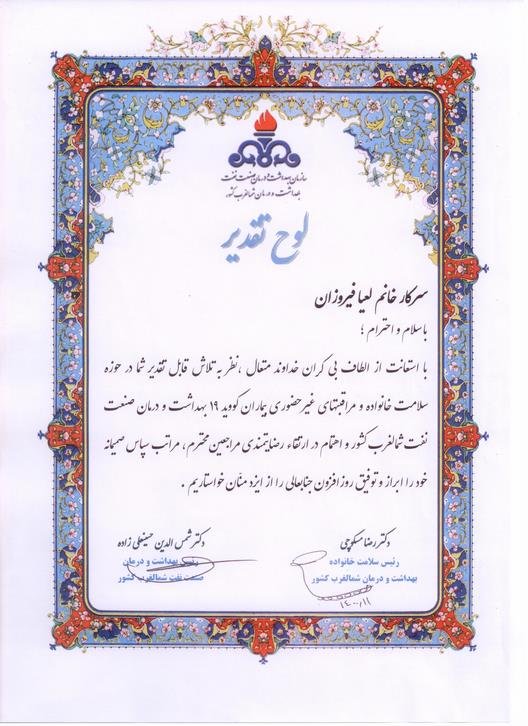 سازمان بهداشت و درمان صنعت نفت
بهداشت و درمان شمالغرب کشور
لوح تقدیر
سرکار خانم لعیا فیروزان
باسلام و احترام ؛
با استعانت از الطاف بی کران خداوند متعال ، نظر به تلاش قابل تقدیر شما در حوزه
سلامت خانواده و مراقبتهای غیر حضوری بیماران کووید ۱۹ بهداشت و درمان صنعت
نفت شمالغرب کشور و اهتمام در ارتقاء رضایتمندی مراجعین محترم ، مراتب سپاس صمیمانه
خود را ابراز و توفیق روز افزون جنابعالی را از ایزد منّان خواستاریم .
دکتر رضا مسکوچی
رئیس سلامت خانواده
بهداشت و درمان شمالغرب کشور
۱۴۰۰,۱۱
دکتر شمس الدین حسینعلی زاده
رئیس بهداشت و درمان
صنعت نفت شمالغرب کشور